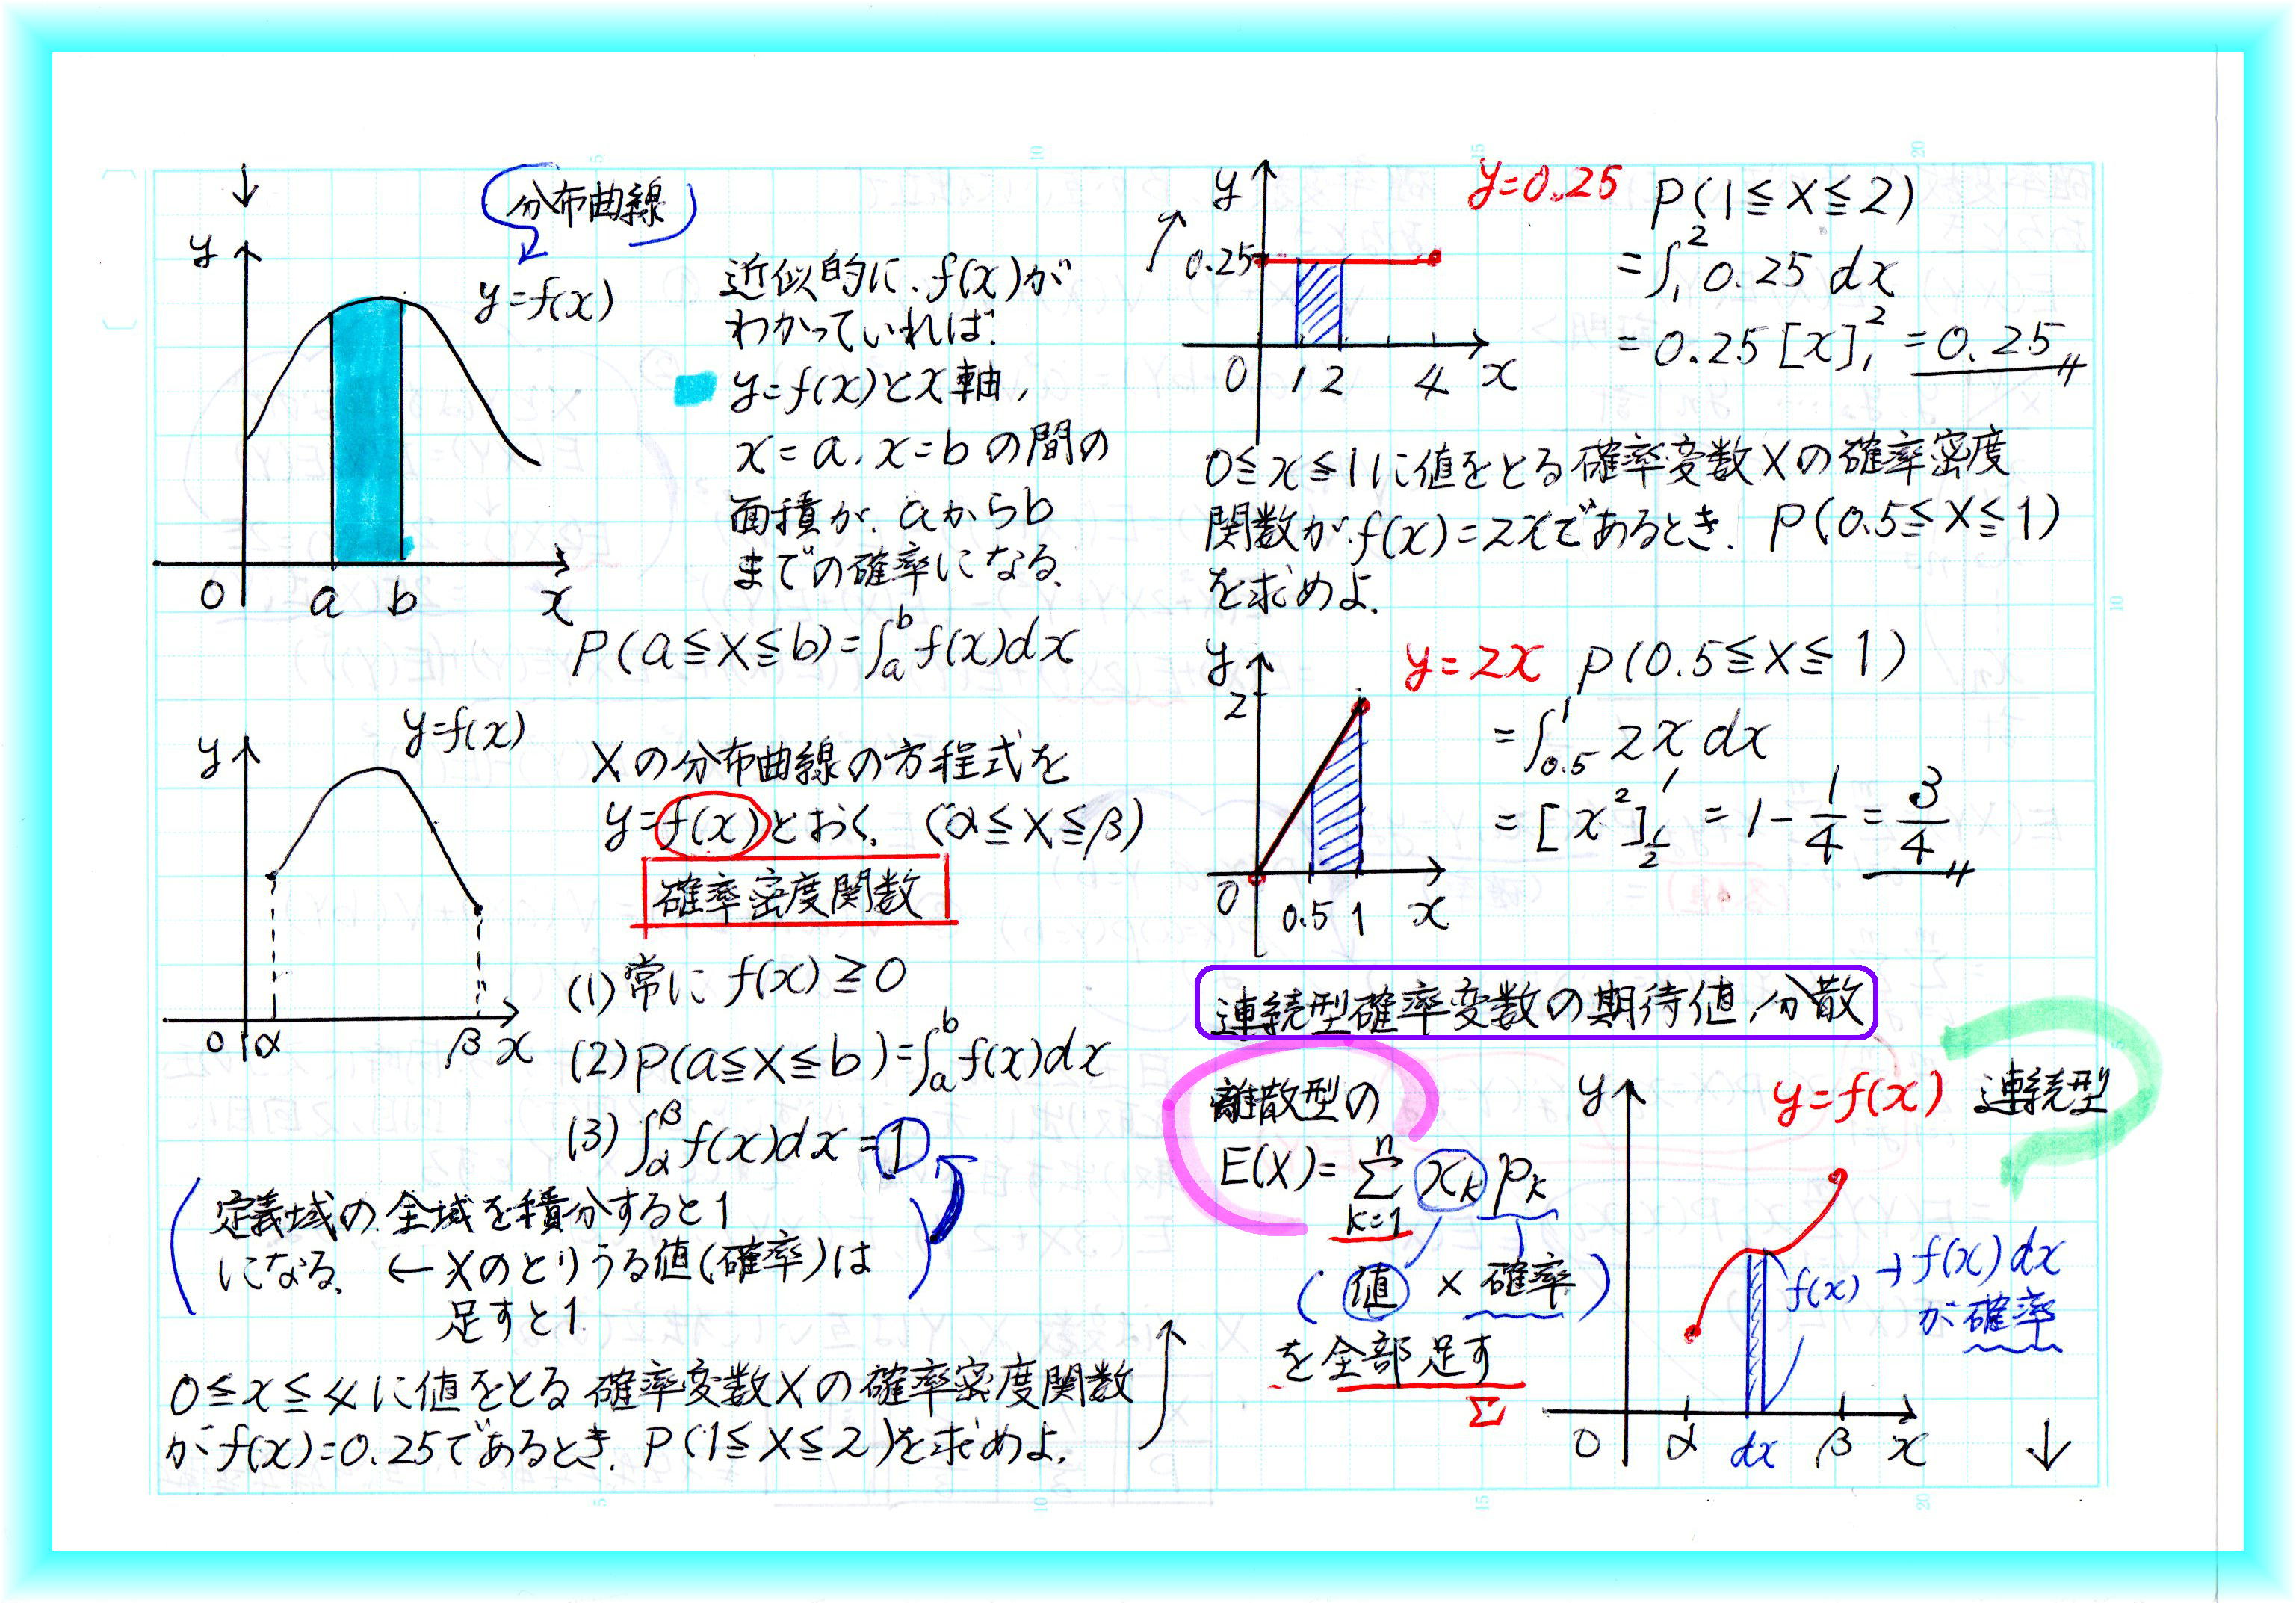 分布曲線
y
y=f(x)
0 a b x
近似的に、f(x)が
わかっていれば、
y=f(x)とx軸,
x=a, x=bの間の
面積が、aからb
までの確率になる、
P(a≦X≦b)=∫_a^b f(x)dx
y=f(x)
y
0 α β x
Xの分布曲線の方程式を
y=f(x)とおく、(α≦X≦β)
確率密度関数
(1)常に f(x)≧0
(2)P(a≦X≦b)=∫_a^b f(x)dx
(3)∫_α^β f(x)dx=1
(定義域の全域を積分すると1
になる、←Xのとりうる値(確率)は
足すと1)
0≦x≦4に値をとる確率変数Xの確率密度関数
がf(x)=0.25であるとき、P(1≦X≦2)を求めよ、
y
y=0.25
0.25
0 1 2 4 x
P(1≦X≦2)
=∫_1^2 0.25 dx
=0.25[x]_1^2=0.25
0≦x≦1に値をとる確率変数Xの確率密度
関数がf(x)=2xであるとき、P(0.5≦X≦1)
を求めよ、
y
2
y=2x
0 0.5 1 x
P(0.5≦X≦1)
=∫_0.5^1 2x dx
=[x^2]_{1/2}^1=1-1/4=3/4
連続型確率変数の期待値,分散
離散型の
E(X)=Σ_{k=1}^n x_k p_k
(値×確率)
を全部足す
Σ
y
y=f(x) 連続型
f(x)→f(x)dx
が確率
0 α dx β x